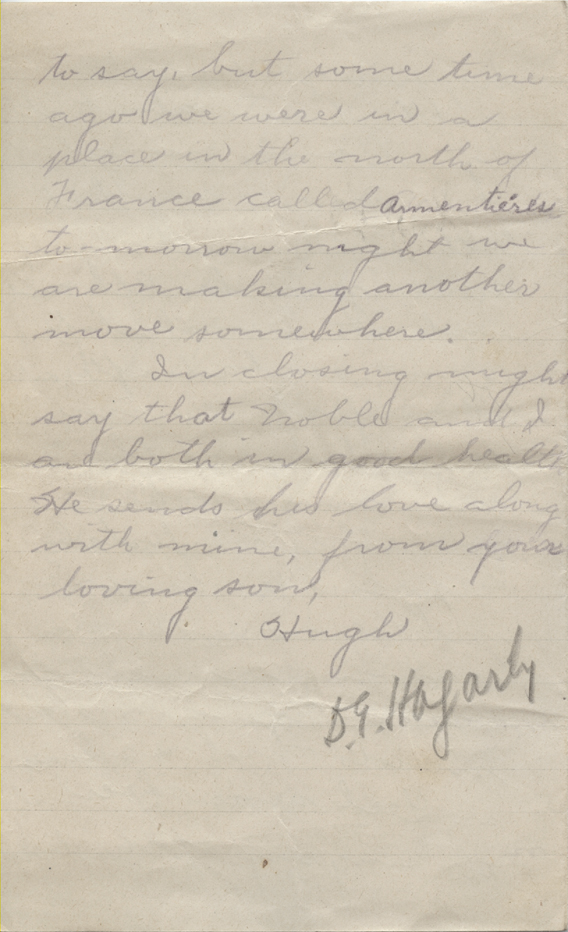 to say, but some time
ago we were in a
place in the north of
France called Armentières
to-morrow night we
are making another
move somewhere.
In closing might
say that Noble and I
are both in good health
He sends his love along
with mine, from your
loving son,
Hugh
D.G. Hagarty